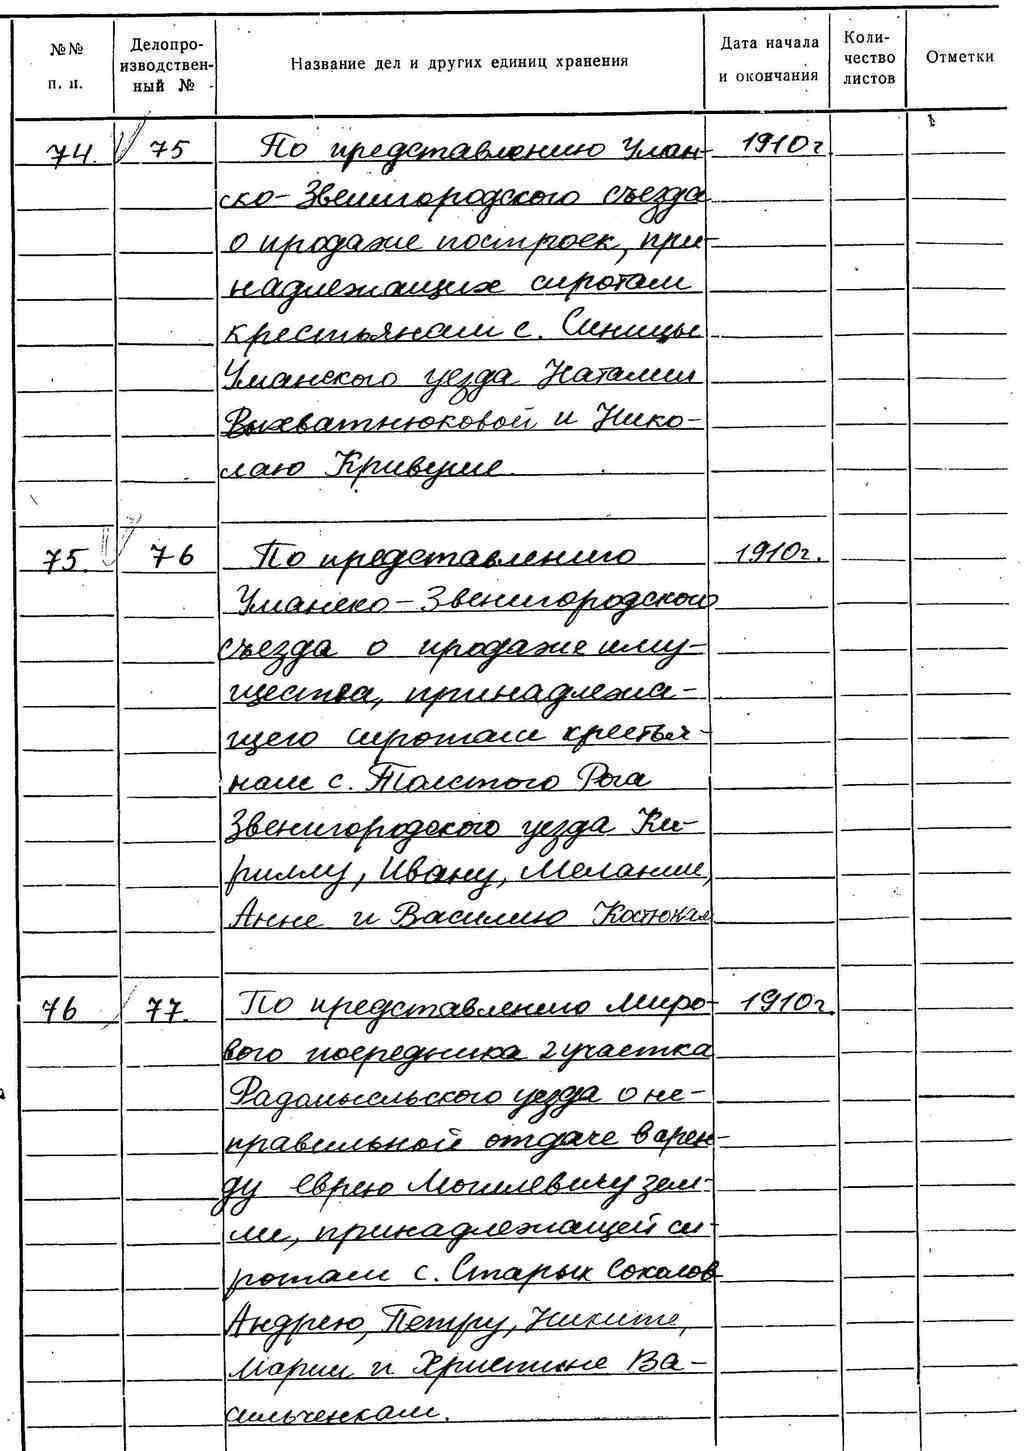 №№ п. п. Делопроизводственный № Название дел и других единиц хранения Дата начала и окончания Количество листов Отметки
74. 75 По представлению Уман- 1910г
ско-Звенигородского съезда
о продаже построек, при-
надлежащих сиротам
крестьянам с. Синицы
Уманского уезда Наталии
Выхватнюковой и Нико-
лаю Кривуше
75. 76 По представлению 1910г.
Уманско-Звенигородского
съезда о продаже иму-
щества, принадлежа-
щего сиротам крестья-
нам с. Толстого Рога
Звенигородского уезда Ки-
риллу, Ивану, Мелании,
Анне и Василию Костюкам
76 77. По представлению миро- 1910г.
вого посредника 2 участка
Радомысльского уезда о не-
правильной отдаче в арен-
ду еврею Могилевичу зем-
ли, принадлежащей си-
ротам с. Старых Соколов
Андрею, Петру, Никите,
Марии и Христине Ва-
сильченкам.